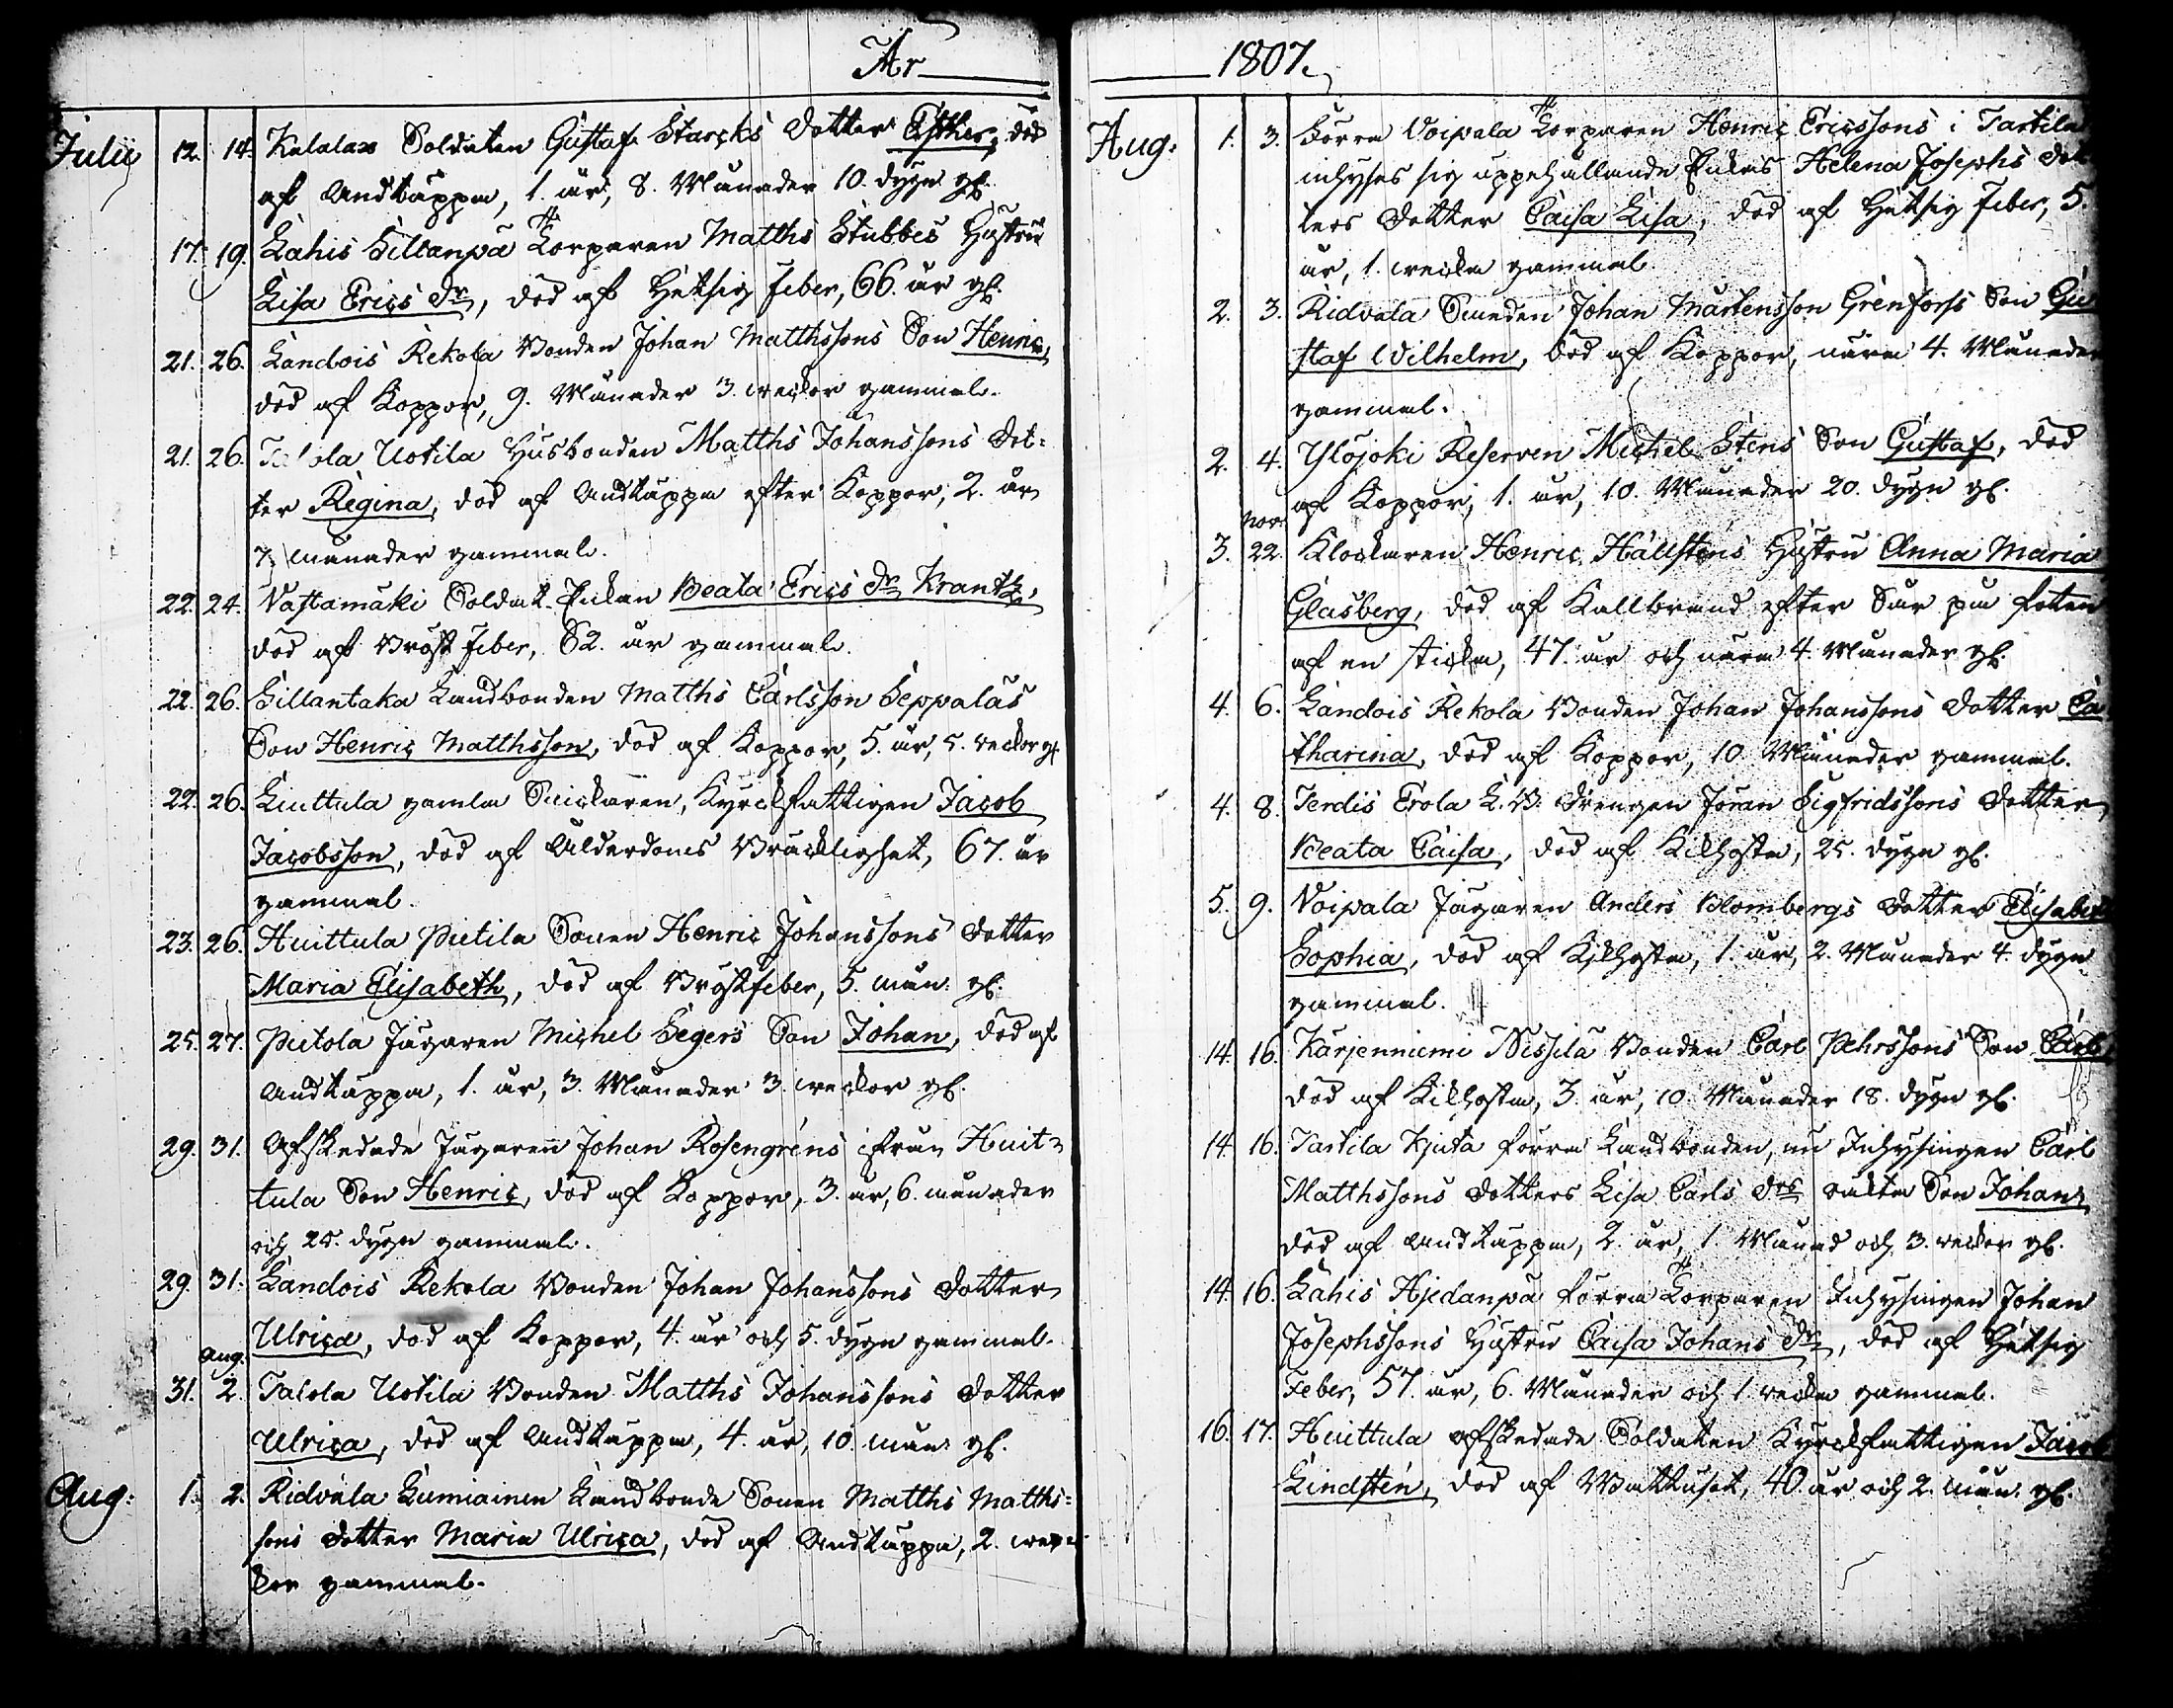 År
Julii 12. 14. Kalalax Soldaten Gustaf Starcks dotter Esther, död
af Andtäppa, 1. år, 8. Månader 10. dygn gl.
17. 19. Lahis Sillanpä Torparen Matths Stubbes Hustru
Lisa Erics dr, död af Hetsig feber, 66. år gl.
21. 26. Landois Rekola Bonden Johan Matthssons Son Henric,
död af Koppor, 9. Månader 3. weckor gammal.
21. 26. Talola Uotila Husbonden Matths Johanssons Dot-
ter Regina, död af Andtäppa efter Koppor, 2. år
7. månader gammal.
22. 24. Nastamäki Soldat Enkan Beata Erics dr Krantz,
död af Bröst feber, 62. år gammal.
22. 26. Sillantaka Landbonden Matths Carlsson Seppäläs
Son Henric Matthsson, död af Koppor, 5. år, 5. veckor gl.
22. 26. Liuttula gamla Snickaren, Kyrckfattigen Jacob
Jacobsson, död af Ålderdoms Bräcklighet, 67. år
gammal.
23. 26. Huittula Pietila Sonen Henric Johanssons dotter
Maria Elisabeth, död af Bröstfeber, 5. mån. gl.
25. 27. Pietola Jägaren Michel Segers Son Johan, död af
Andtäppa, 1. år, 3. Månader 3. weckor gl.
29. 31. Afskedade Jägaren Johan Rosengréns ifrån Huit-
tula Son Henric, död af Koppor, 3. år, 6. månader
och 25. dygn gammal.
29. 31. Landois Rekola Bonden Johan Johanssons dotter
Ulrica, död af Koppor, 4. år och 5. dygn gammal.
Aug.
31. 2. Talola Uotila Bonden Matths Johanssons dotter
Ulrica, död af Andtäppa, 4. år, 10. mån. gl.
Aug: 1. 2. Ridvala Lumiainen Landbonde Sonen Matths Matths-
sons dotter Maria Ulrica, död af Andtäppa, 2. wec-
kor gammal.
1807.
Aug: 1. 3. Förra Voipala Torparen Henric Ericssons i Tarttila
inhyses sig uppehållande Enkas Helena Josephs dot
ters dotter Caisa Lisa, död af Hetsig feber, 5.
år, 1. wecka gammal.
2. 3. Ridvala Smeden Johan Mårtensson Grenfors Son Gu
staf Wilhelm, död af Koppor, nära 4. Månader
gammal.
2. 4. Ylöjoki Reserven Michel Stens Son Gustaf, död
af Koppor, 1. år, 10. Månader 20. dygn gl.
Nov.
3. 22. Klockaren Henric Hällstens Hustru Anna Maria
Glasberg, död af Kallbrand efter Sår på foten
af en sticka, 47. år och nära 4. Månader gl.
4. 6. Landois Rekola Bonden Johan Johanssons dotter Ca
tharina, död af Koppor, 10. Månader gammal.
4. 8. Terdis Erola L. B. Drengen Jöran Sigfridssons dotter
Beata Caisa, död af Kikhosta, 25. dygn gl.
5. 9. Voipala Jägaren Anders Blombergs dotter Elisabet
Sophia, död af Kikhosta, 1. år, 2. Månader 4. dygn
gammal.
14. 16. Kärjenniemi Nissilä Bonden Carl Pehrssons Son Carl
död af Kikhosta, 3. år, 10. Månader 18. dygn gl.
14. 16. Tarttila Kjuta förra Landbonden, nu Inhysingen Carl
Matthssons dotters Lisa Carls drs oäkta Son Johan,
död af Andtäppa, 2. år, 1. Månad och 3. veckor gl.
14. 16. Lahis Hjedanpä förra Torparen Inhysingen Johan
Josephssons Hustru Caisa Johans dr, död af Hetsig
Feber, 57. år, 6. Månader och 1. vecka gammal.
16. 17. Huittula afskedade Soldaten Kyrckfattigen Jacob
Lindstén, död af Wattusot, 40. år och 2. mån. gl.